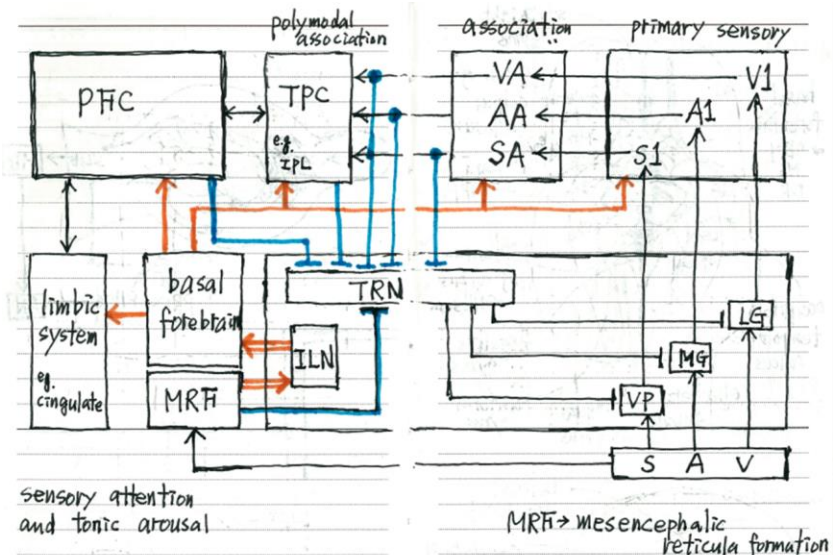 polymodal
association
association
primary sensory
PFC
TPC
e.g.
IPL
VA
AA
SA
V1
A1
S1
limbic
system
eg.
cingulate
basal
forebrain
MRF
ILN
TRN
LG
MG
VP
S A V
sensory attention
and tonic arousal
MRF→mesencephalic
reticula formation